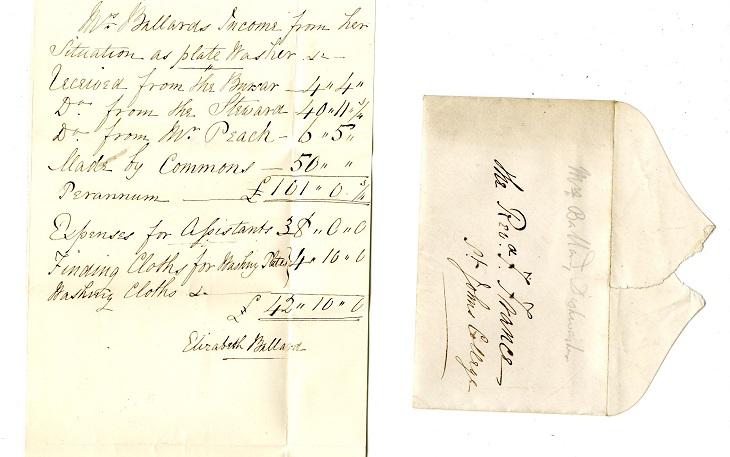 Mrs Ballards Income from her
Situation as plate Washer &c
Received from the Bursar — 4 " 4 "
Do from the Steward — 40 " 11 " 3/4
Do from Mr Peach — 6 " 5 "
Made by Commons — 50 " "
Perannum — £ 101 " 0 " 3/4
Expenses for Assistants 38 " 0 " 0
Finding Cloths for Washing Plates 4 " 10 " 0
Washing Cloths &c
£ 42 " 10 " 0
Elizabeth Ballard
The Revd. Dr France
St Johns College
Mrs Ballard, Dishwasher